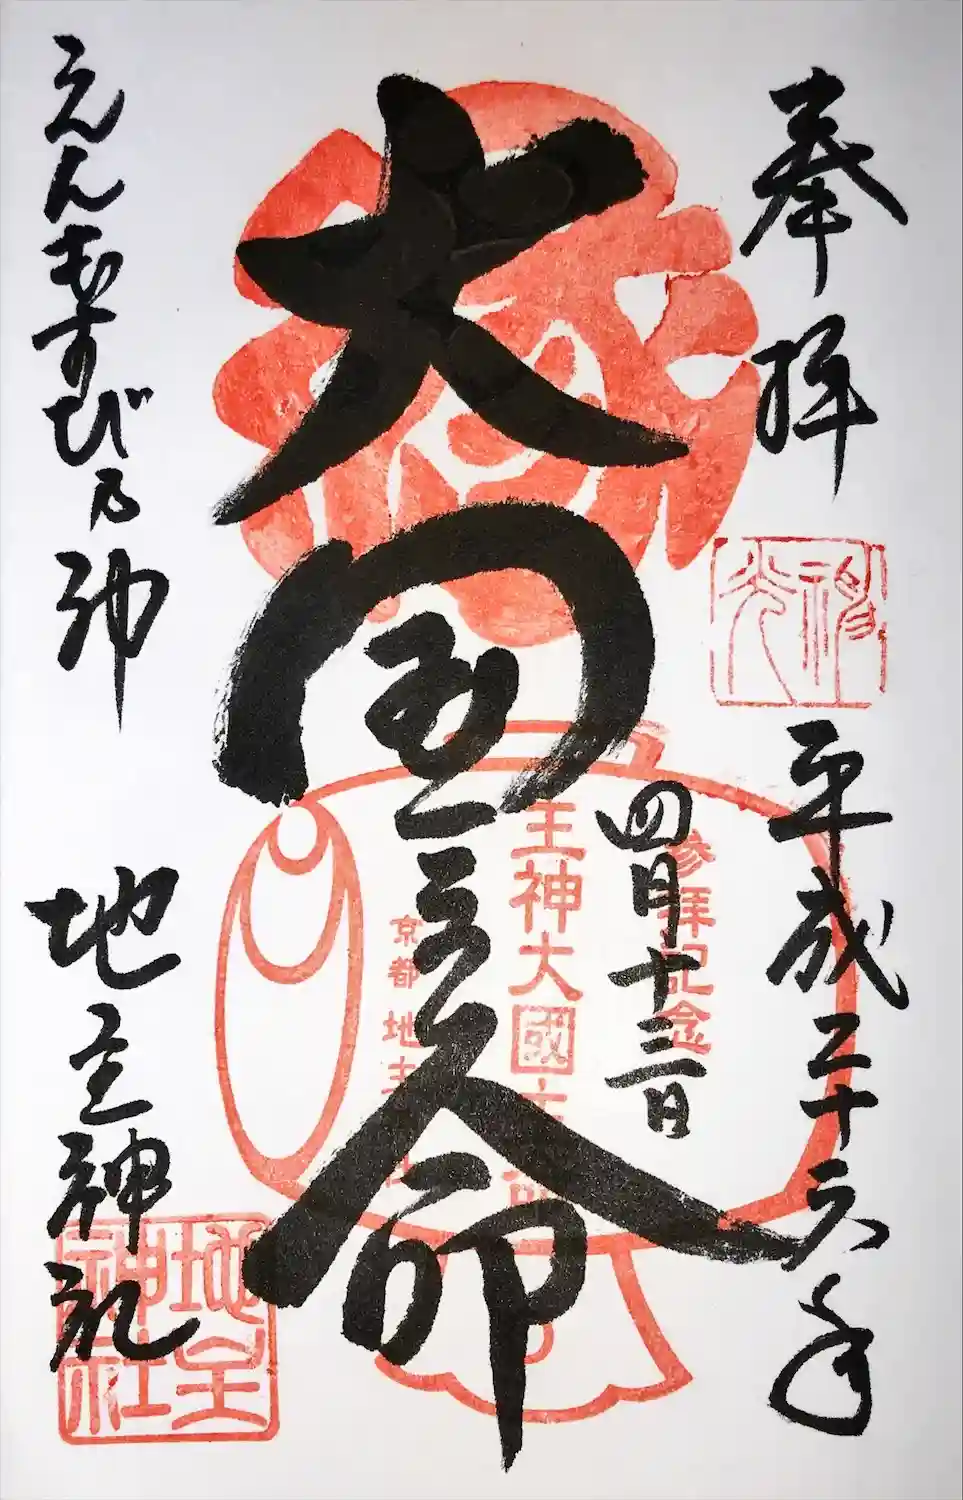 奉拝
神光
平成二十六年
四月十三日
大国主命
参拝記念
王神大國主
京都 地主
えんむすび乃神
地主神社
地主神社